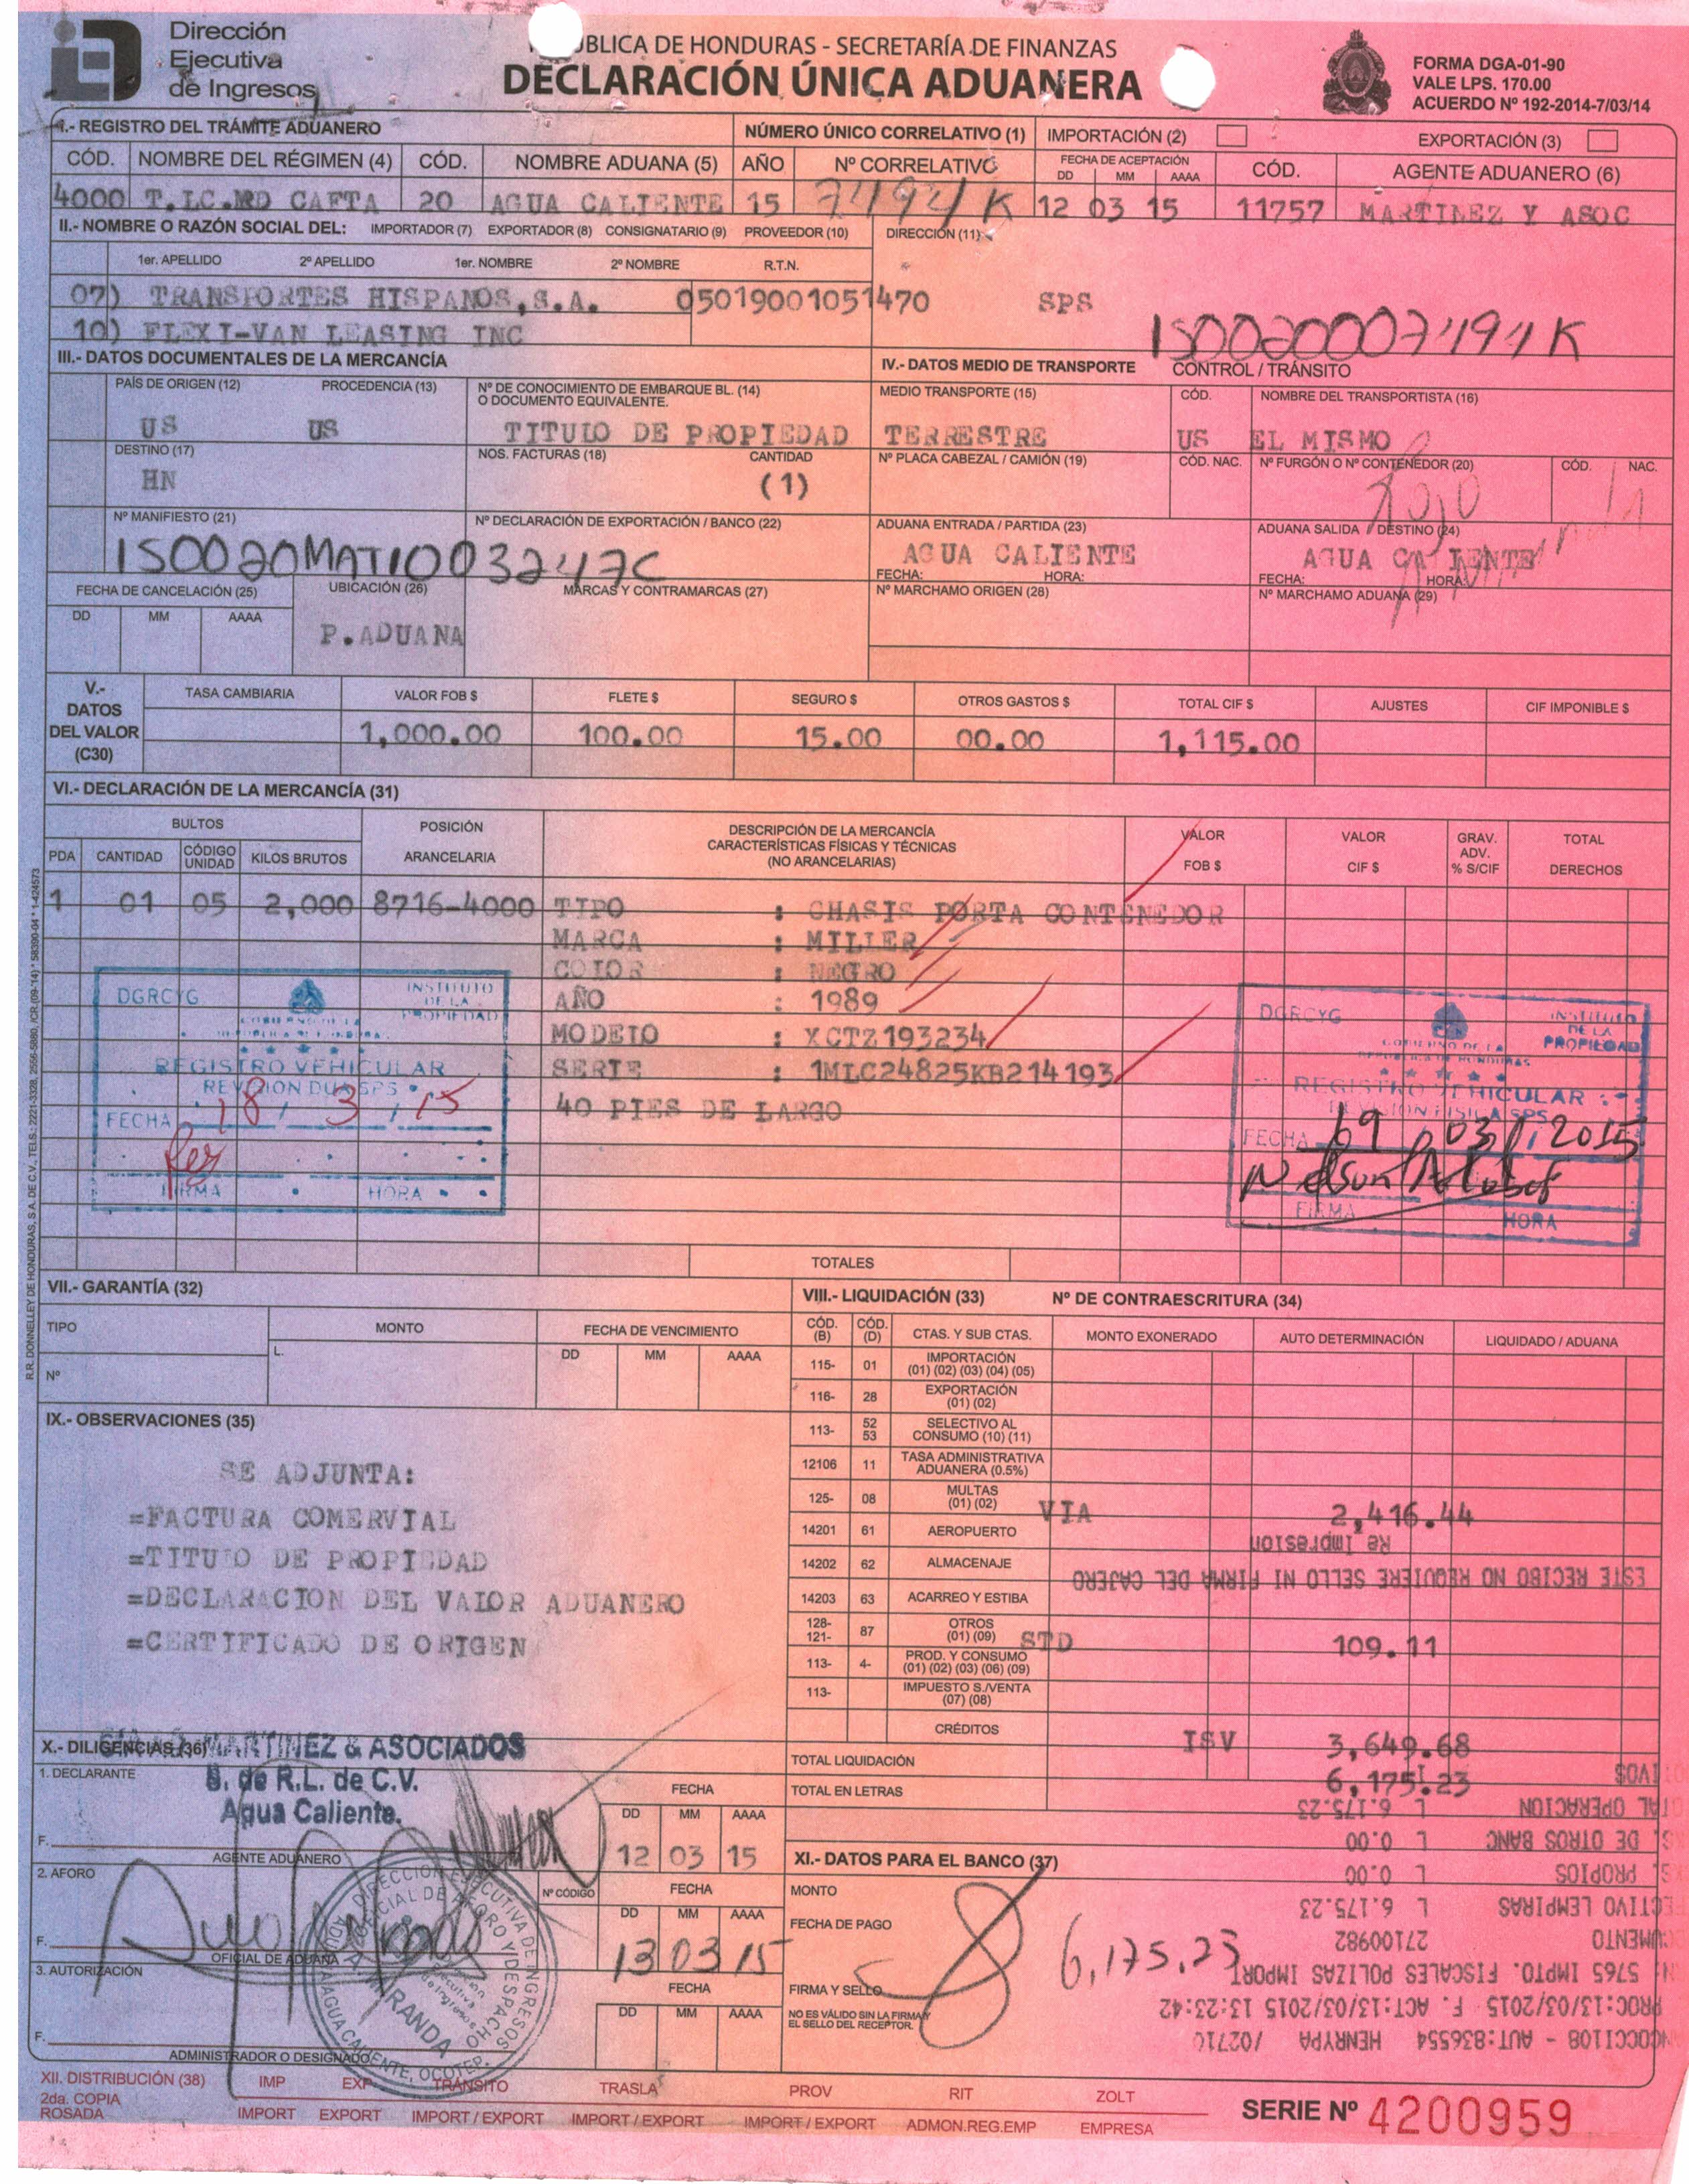 Dirección
Ejecutiva
de Ingresos
BLICA DE HONDURAS - SECRETARÍA DE FINANZAS
DECLARACIÓN ÚNICA ADUANERA
FORMA DGA-01-90
VALE LPS. 170.00
ACUERDO Nº 192-2014-7/03/14
1.- REGISTRO DEL TRÁMITE ADUANERO
NÚMERO ÚNICO CORRELATIVO (1) IMPORTACIÓN (2) EXPORTACIÓN (3)
CÓD. NOMBRE DEL RÉGIMEN (4) CÓD. NOMBRE ADUANA (5) AÑO Nº CORRELATIVO FECHA DE ACEPTACIÓN CÓD. AGENTE ADUANERO (6)
DD MM AAAA
4000 T.LC.MD CAFTA 20 AGUA CALIENTE 15 7494K 12 03 15 11757 MARTINEZ Y ASOC
II.- NOMBRE O RAZÓN SOCIAL DEL: IMPORTADOR (7) EXPORTADOR (8) CONSIGNATARIO (9) PROVEEDOR (10) DIRECCIÓN (11)
1er. APELLIDO 2º APELLIDO 1er. NOMBRE 2º NOMBRE R.T.N.
07) TRANSPORTES HISPANOS,S.A. 05019001051470 SPS
10) FLEXI-VAN LEASING INC
150020007494K
III.- DATOS DOCUMENTALES DE LA MERCANCÍA
IV.- DATOS MEDIO DE TRANSPORTE CONTROL / TRÁNSITO
PAÍS DE ORIGEN (12) PROCEDENCIA (13) Nº DE CONOCIMIENTO DE EMBARQUE BL. (14) O DOCUMENTO EQUIVALENTE. MEDIO TRANSPORTE (15) CÓD. NOMBRE DEL TRANSPORTISTA (16)
US US TITULO DE PROPIEDAD TERRESTRE US EL MISMO
DESTINO (17) NOS. FACTURAS (18) CANTIDAD Nº PLACA CABEZAL / CAMIÓN (19) CÓD. NAC. Nº FURGÓN O Nº CONTENEDOR (20) CÓD. NAC.
HN (1)
Nº MANIFIESTO (21) Nº DECLARACIÓN DE EXPORTACIÓN / BANCO (22) ADUANA ENTRADA / PARTIDA (23) ADUANA SALIDA / DESTINO (24)
150020MAT1003247C AGUA CALIENTE AGUA CA IENTE
FECHA: HORA: FECHA: HORA:
FECHA DE CANCELACIÓN (25) UBICACIÓN (26) MARCAS Y CONTRAMARCAS (27) Nº MARCHAMO ORIGEN (28) Nº MARCHAMO ADUANA (29)
DD MM AAAA
P.ADUANA
V.- DATOS DEL VALOR (C30)
TASA CAMBIARIA VALOR FOB $ FLETE $ SEGURO $ OTROS GASTOS $ TOTAL CIF $ AJUSTES CIF IMPONIBLE $
1,000.00 100.00 15.00 00.00 1,115.00
VI.- DECLARACIÓN DE LA MERCANCÍA (31)
BULTOS POSICIÓN ARANCELARIA DESCRIPCIÓN DE LA MERCANCÍA CARACTERÍSTICAS FÍSICAS Y TÉCNICAS (NO ARANCELARIAS) VALOR FOB $ VALOR CIF $ GRAV. ADV. % S/CIF TOTAL DERECHOS
PDA CANTIDAD CÓDIGO UNIDAD KILOS BRUTOS
1 01 05 2,000 8716-4000 TIPO : CHASIS PORTA CONTENEDOR
MARCA : MILLER
COLOR : NEGRO
AÑO : 1989
MODELO : XCTZ193234
SERIE : 1MLC24825KB214193
40 PIES DE LARGO
DGRCYG INSTITUTO DE LA PROPIEDAD
REGISTRO VEHICULAR
REVISION DUA SPS
FECHA 18 / 3 / 15
FIRMA HORA
DGRCYG INSTITUTO DE LA PROPIEDAD
GOBIERNO DE LA
REPUBLICA DE HONDURAS
REGISTRO VEHICULAR
REVISION FISICA SPS
FECHA 19 / 03 / 2015
Nelson
FIRMA HORA
TOTALES
VII.- GARANTÍA (32)
TIPO MONTO FECHA DE VENCIMIENTO
L. DD MM AAAA
Nº
VIII.- LIQUIDACIÓN (33) Nº DE CONTRAESCRITURA (34)
CÓD. (B) CÓD. (D) CTAS. Y SUB CTAS. MONTO EXONERADO AUTO DETERMINACIÓN LIQUIDADO / ADUANA
115- 01 IMPORTACIÓN (01) (02) (03) (04) (05)
116- 28 EXPORTACIÓN (01) (02)
113- 52 53 SELECTIVO AL CONSUMO (10) (11)
12106 11 TASA ADMINISTRATIVA ADUANERA (0.5%)
125- 08 MULTAS (01) (02) VIA 2,416.44
14201 61 AEROPUERTO
14202 62 ALMACENAJE
14203 63 ACARREO Y ESTIBA
128- 121- 87 OTROS (01) (09) STD 109.11
113- 4- PROD. Y CONSUMO (01) (02) (03) (06) (09)
113- IMPUESTO S./VENTA (07) (08)
CRÉDITOS ISV 3,649.68
TOTAL LIQUIDACIÓN 6,175.23
TOTAL EN LETRAS
IX.- OBSERVACIONES (35)
SE ADJUNTA:
=FACTURA COMERVIAL
=TITULO DE PROPIEDAD
=DECLARACION DEL VALOR ADUANERO
=CERTIFICADO DE ORIGEN
X.- DILIGENCIAS (36)
MARTINEZ & ASOCIADOS
S. de R.L. de C.V.
Agua Caliente.
1. DECLARANTE FECHA
DD MM AAAA
12 03 15
F. AGENTE ADUANERO
2. AFORO Nº CÓDIGO FECHA
DD MM AAAA
13 03 15
F. OFICIAL DE ADUANA
3. AUTORIZACIÓN FECHA
DD MM AAAA
F. ADMINISTRADOR O DESIGNADO
DIRECCION EJECUTIVA DE INGRESOS
OFICIAL DE AFORO Y DESPACHO
MIRANDA
AGUA CALIENTE, OCOTEP.
XI.- DATOS PARA EL BANCO (37)
MONTO
FECHA DE PAGO
6,175.23
FIRMA Y SELLO
NO ES VÁLIDO SIN LA FIRMA Y EL SELLO DEL RECEPTOR.
AUT:836554 HENRYPA /02710
PROC:13/03/2015 F. ACT:13/03/2015 13:23:42
5765 IMPTO. FISCALES POLIZAS IMPORT
UMENTO 27100982
ECTIVO LEMPIRAS L 6.175.23
PROPIOS L 0.00
DE OTROS BANC L 0.00
TAL OPERACION L 6.175.23
ESTE RECIBO NO REQUIERE SELLO NI FIRMA DEL CAJERO
Re Impresion
XII. DISTRIBUCIÓN (38) IMP EXP TRÁNSITO TRASLA PROV RIT ZOLT
2da. COPIA ROSADA IMPORT EXPORT IMPORT / EXPORT IMPORT / EXPORT IMPORT / EXPORT ADMON.REG.EMP EMPRESA
SERIE Nº 4200959
R.R. DONNELLEY DE HONDURAS, S.A. DE C.V., TELS.: 2221-3328, 2556-5880, /CR.(09-14) * 58390-04 * 1-424573